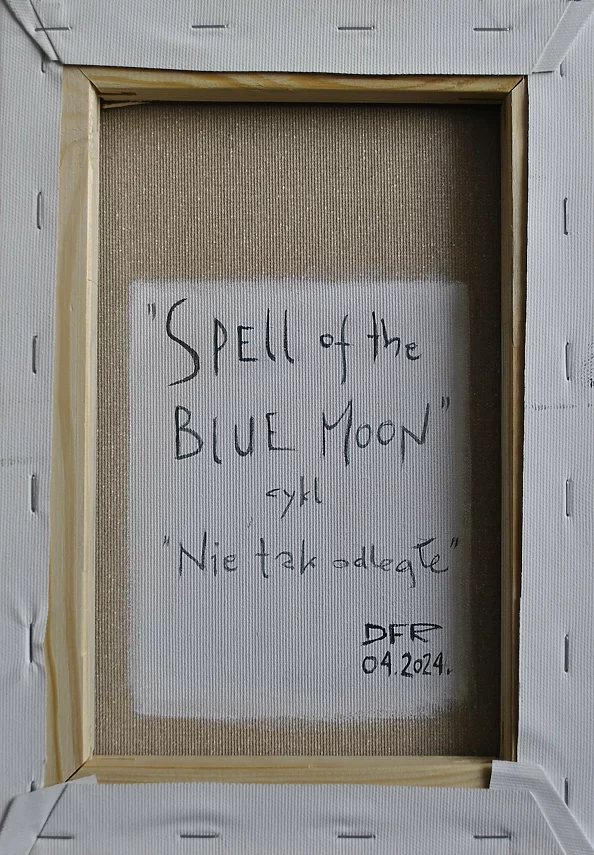 "SPEll of the
BLUE MOON"
cykl
"Nie tak odległe"
DFR
04.2024.